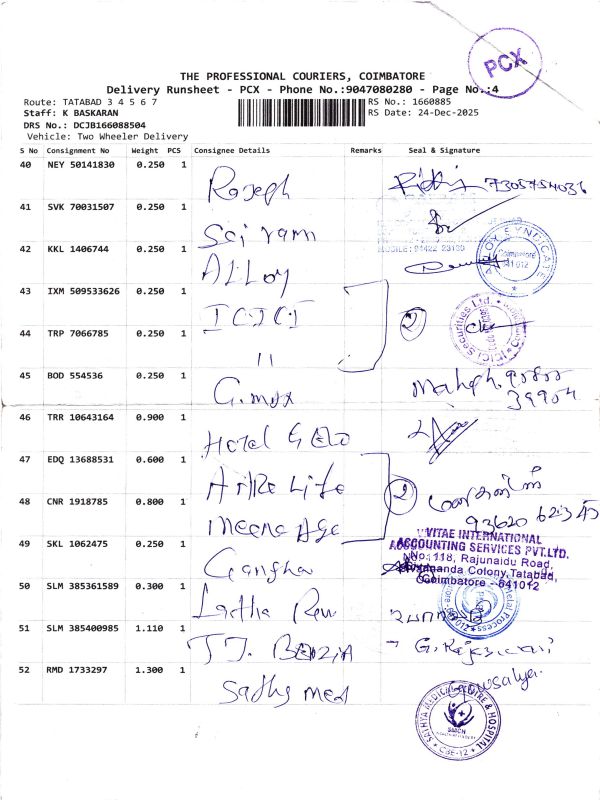 PCX
THE PROFESSIONAL COURIERS, COIMBATORE
Delivery Runsheet - PCX - Phone No.:9047080280 - Page No.:4
Route: TATABAD 3 4 5 6 7
RS No.: 1660885
Staff: K BASKARAN
RS Date: 24-Dec-2025
DRS No.: DCJB166088504
Vehicle: Two Wheeler Delivery
S No Consignment No Weight PCS Consignee Details Remarks Seal & Signature
40 NEY 50141830 0.250 1 Roseph 7305754036
41 SVK 70031507 0.250 1 Sri ram
MOBILE: 94422 23190
42 KKL 1406744 0.250 1 Alloy
ALLOY SYNDICATE Coimbatore 641 012
43 IXM 509533626 0.250 1 ICICI 2
ICICI Securities Ltd.
44 TRP 7066785 0.250 1 "
45 BOD 554536 0.250 1 G.max
39904
46 TRR 10643164 0.900 1 Hotel
47 EDQ 13688531 0.600 1 Life 2
48 CNR 1918785 0.800 1 Meena
93620 62345
49 SKL 1062475 0.250 1 Gangha
VITAE INTERNATIONAL
ACCOUNTING SERVICES PVT.LTD.
No:118, Rajunaidu Road,
Colony,Tatabad,
Coimbatore - 641012
50 SLM 385361589 0.300 1 Latha
51 SLM 385400985 1.110 1 T.T. - G.
52 RMD 1733297 1.300 1 Sathy med
SATHYA MEDICAL CENTRE & HOSPITAL
SMCH
CBE-12